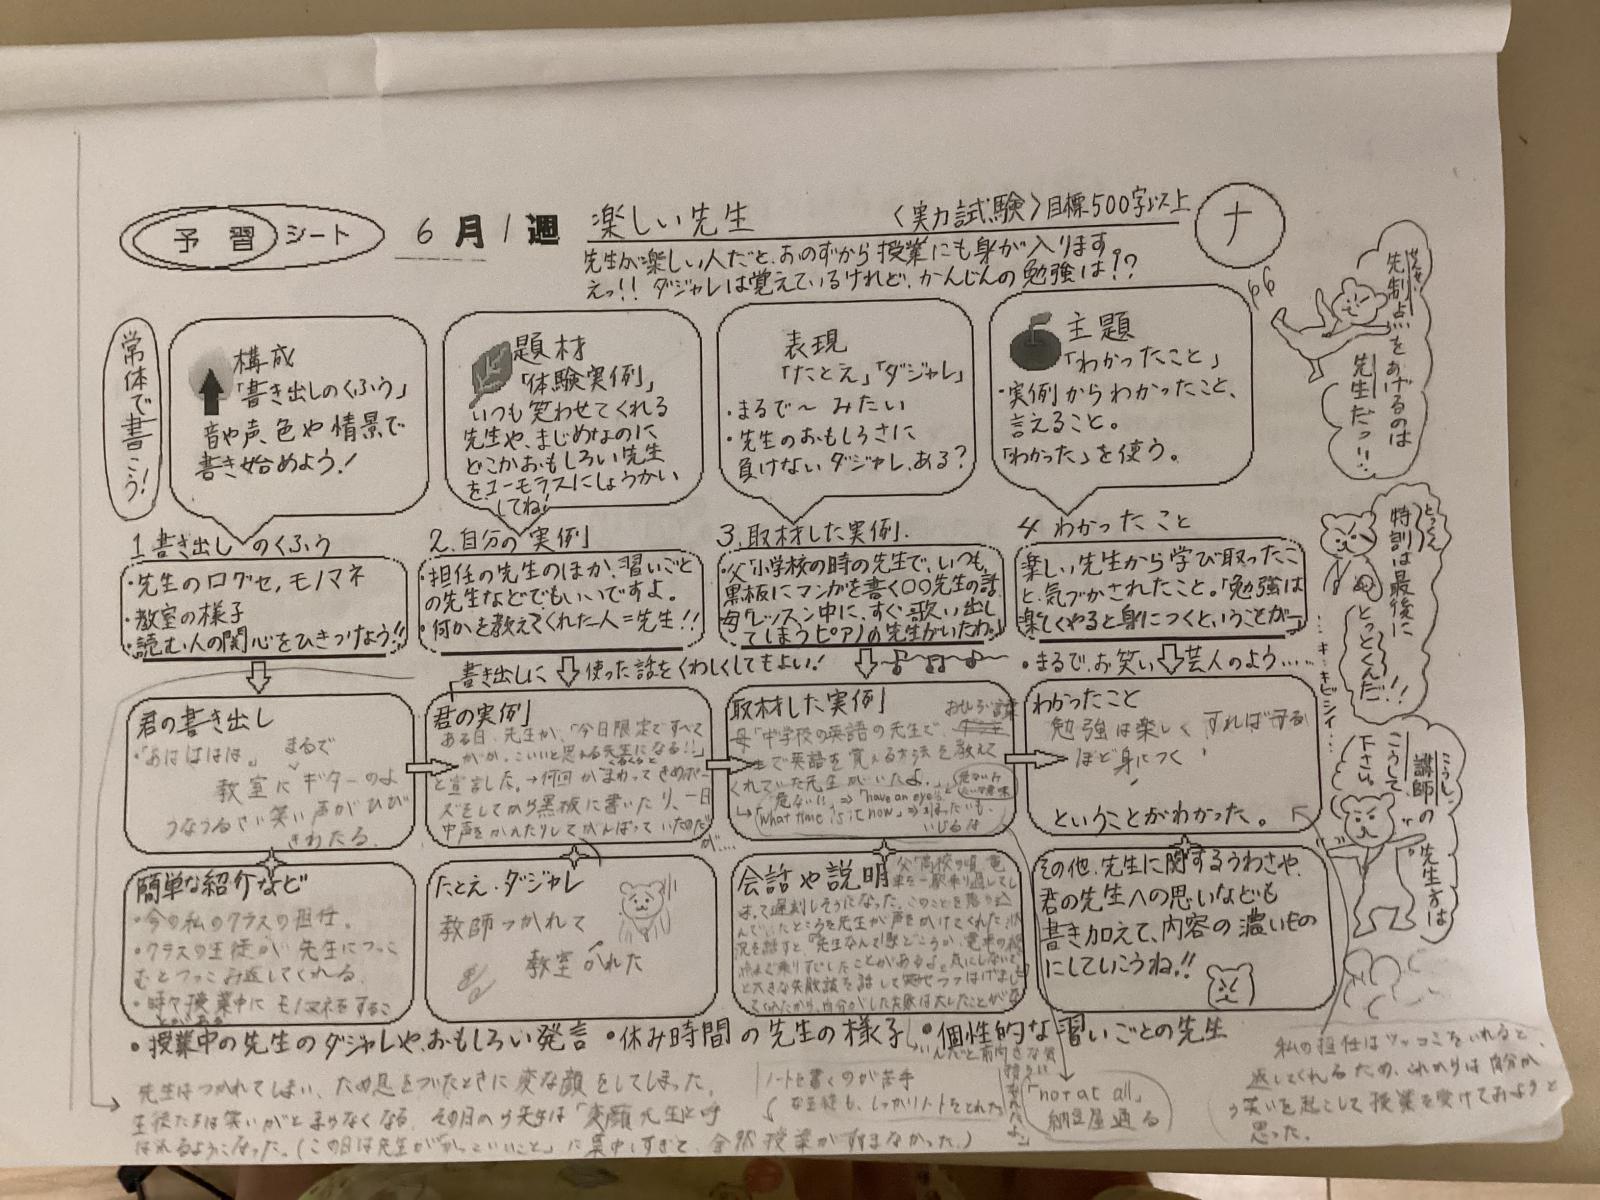 予習シート
6月1週
楽しい先生
〈実力試験〉目標500字以上
ナ
先生が楽しい人だと、おのずから授業にも身が入ります。
えっ!! ダジャレは覚えているけれど、かんじんの勉強は!?
常体で書こう!
構成
「書き出しのくふう」
音や声、色や情景で
書き始めよう!
題材
「体験実例」
いつも笑わせてくれる
先生や、まじめなのに
どこかおもしろい先生
をユーモラスにしょうかい
してね!
表現
「たとえ」「ダジャレ」
・まるで〜みたい
・先生のおもしろさに
負けないダジャレ、ある?
主題
「わかったこと」
・実例からわかったこと、
言えること。
「わかった」を使う。
1 書き出しのくふう
・先生の口グセ、モノマネ
・教室の様子
・読む人の関心をひきつけよう!!
2.自分の実例
・担任の先生のほか、習いごと
の先生などでもいいですよ。
・何かを教えてくれた人=先生!!
3.取材した実例
・父「小学校の時の先生で、いつも
黒板にマンガを書く〇〇先生の話
母「レッスン中に、すぐ歌い出し
てしまうピアノの先生がいたわ。」
4 わかったこと
楽しい先生から学び取ったこ
と、気づかされたこと。「勉強は
楽しくやると身につくということが〜
書き出しに使った話をくわしくしてもよい!
・まるで、お笑い芸人のよう……
君の書き出し
・「あはははは。」
まるで
教室にギターのよ
うなうるさい笑い声がひび
きわたる。
君の実例
ある日、先生が、「今日限定ですべて
がかっこいいと思える先生になる!!」
と宣言した。→何回かまわってきめポー
ズをしてから黒板に書いたり、一日
中声をかえたりしてがんばっていたのだ
が…
取材した実例
母「中学校の英語の先生で、おもしろい言葉
で英語を覚える方法を教えて
くれていた先生がいたよ。」
危ない!! ⇒「have an eye」
「What time is it now」⇒ほったいも、
いじるな
わかったこと
勉強は楽しくすればするほど身につく
ということがわかった。
簡単な紹介など
・今の私のクラスの担任。
・クラスの生徒が先生につっこ
むとつっこみ返してくれる。
・時々授業中にモノマネをするこ
とがある
たとえ・ダジャレ
教師つかれて
教室かれた
会話や説明
父「高校の頃、電
車を一駅乗り過してし
まって遅刻しそうになった。このことを
ところを先生が声をかけてくれた。状
況を話すと、「先生なんて1駅どころか、電車の
乗りすごしたことがあるよ。気にしないで
と大きな失敗談を話して笑わせつつはげまし
てくれたから、自分がした失敗は大したことがな
いんだと前向きな気
持ちになれたよ。」
その他、先生に関するうわさや、
君の先生への思いなども
書き加えて、内容の濃いもの
にしていこうね!!
・授業中の先生のダジャレや、おもしろい発言 ・休み時間の先生の様子 ・個性的な習いごとの先生
先生はつかれてしまい、ため息をついたときに変な顔をしてしまった。
生徒たちは笑いがとまらなくなる。その日から先生は「変顔先生」と呼
ばれるようになった。(この日は先生が「かっこいいこと」に集中しすぎて、全然授業がすすまなかった。)
ノートを書くのが苦手
な生徒も、しっかりノートをとれた
「not at all」
納豆屋通る
私の担任はツッコミをいれると、
返してくれるため、これからは自分か
ら笑いを起こして授業を受けてみようと
思った。
せんせい
先制点をあげるのは
先生だっ!!
とっくん
特訓は最後に
とっとくんだ!!
…キ・キビシイ…
こうし
講師の先生方は
こうして
下さい。